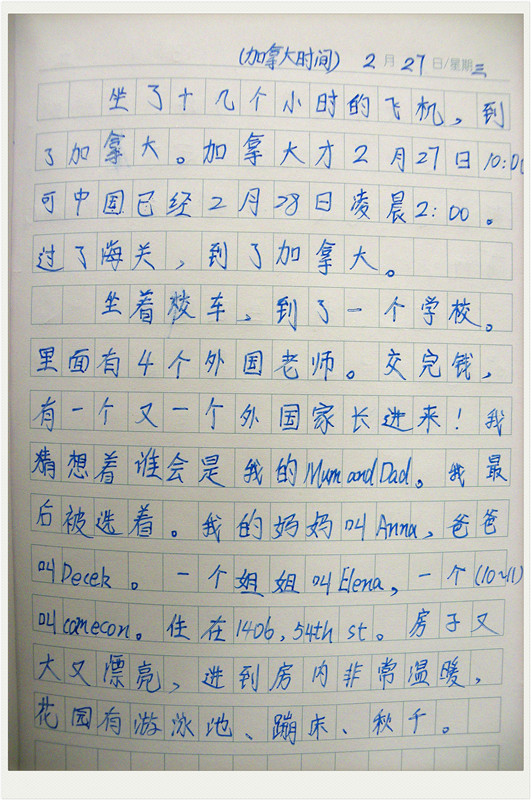 (加拿大时间) 2月27日/星期三
坐了十几个小时的飞机,到
了加拿大。加拿大才2月27日10:00
可中国已经2月28日凌晨2:00。
过了海关,到了加拿大。
坐着校车,到了一个学校。
里面有4个外国老师。交完钱,
有一个又一个外国家长进来!我
猜想着谁会是我的Mum and Dad。我最
后被选着。我的妈妈叫Anna,爸爸
叫Decek。一个姐姐叫Elena,一个(10~11)
叫comecon。住在1406,54th st。房子又
大又漂亮,进到房内非常温暖,
花园有游泳池、蹦床、秋千。